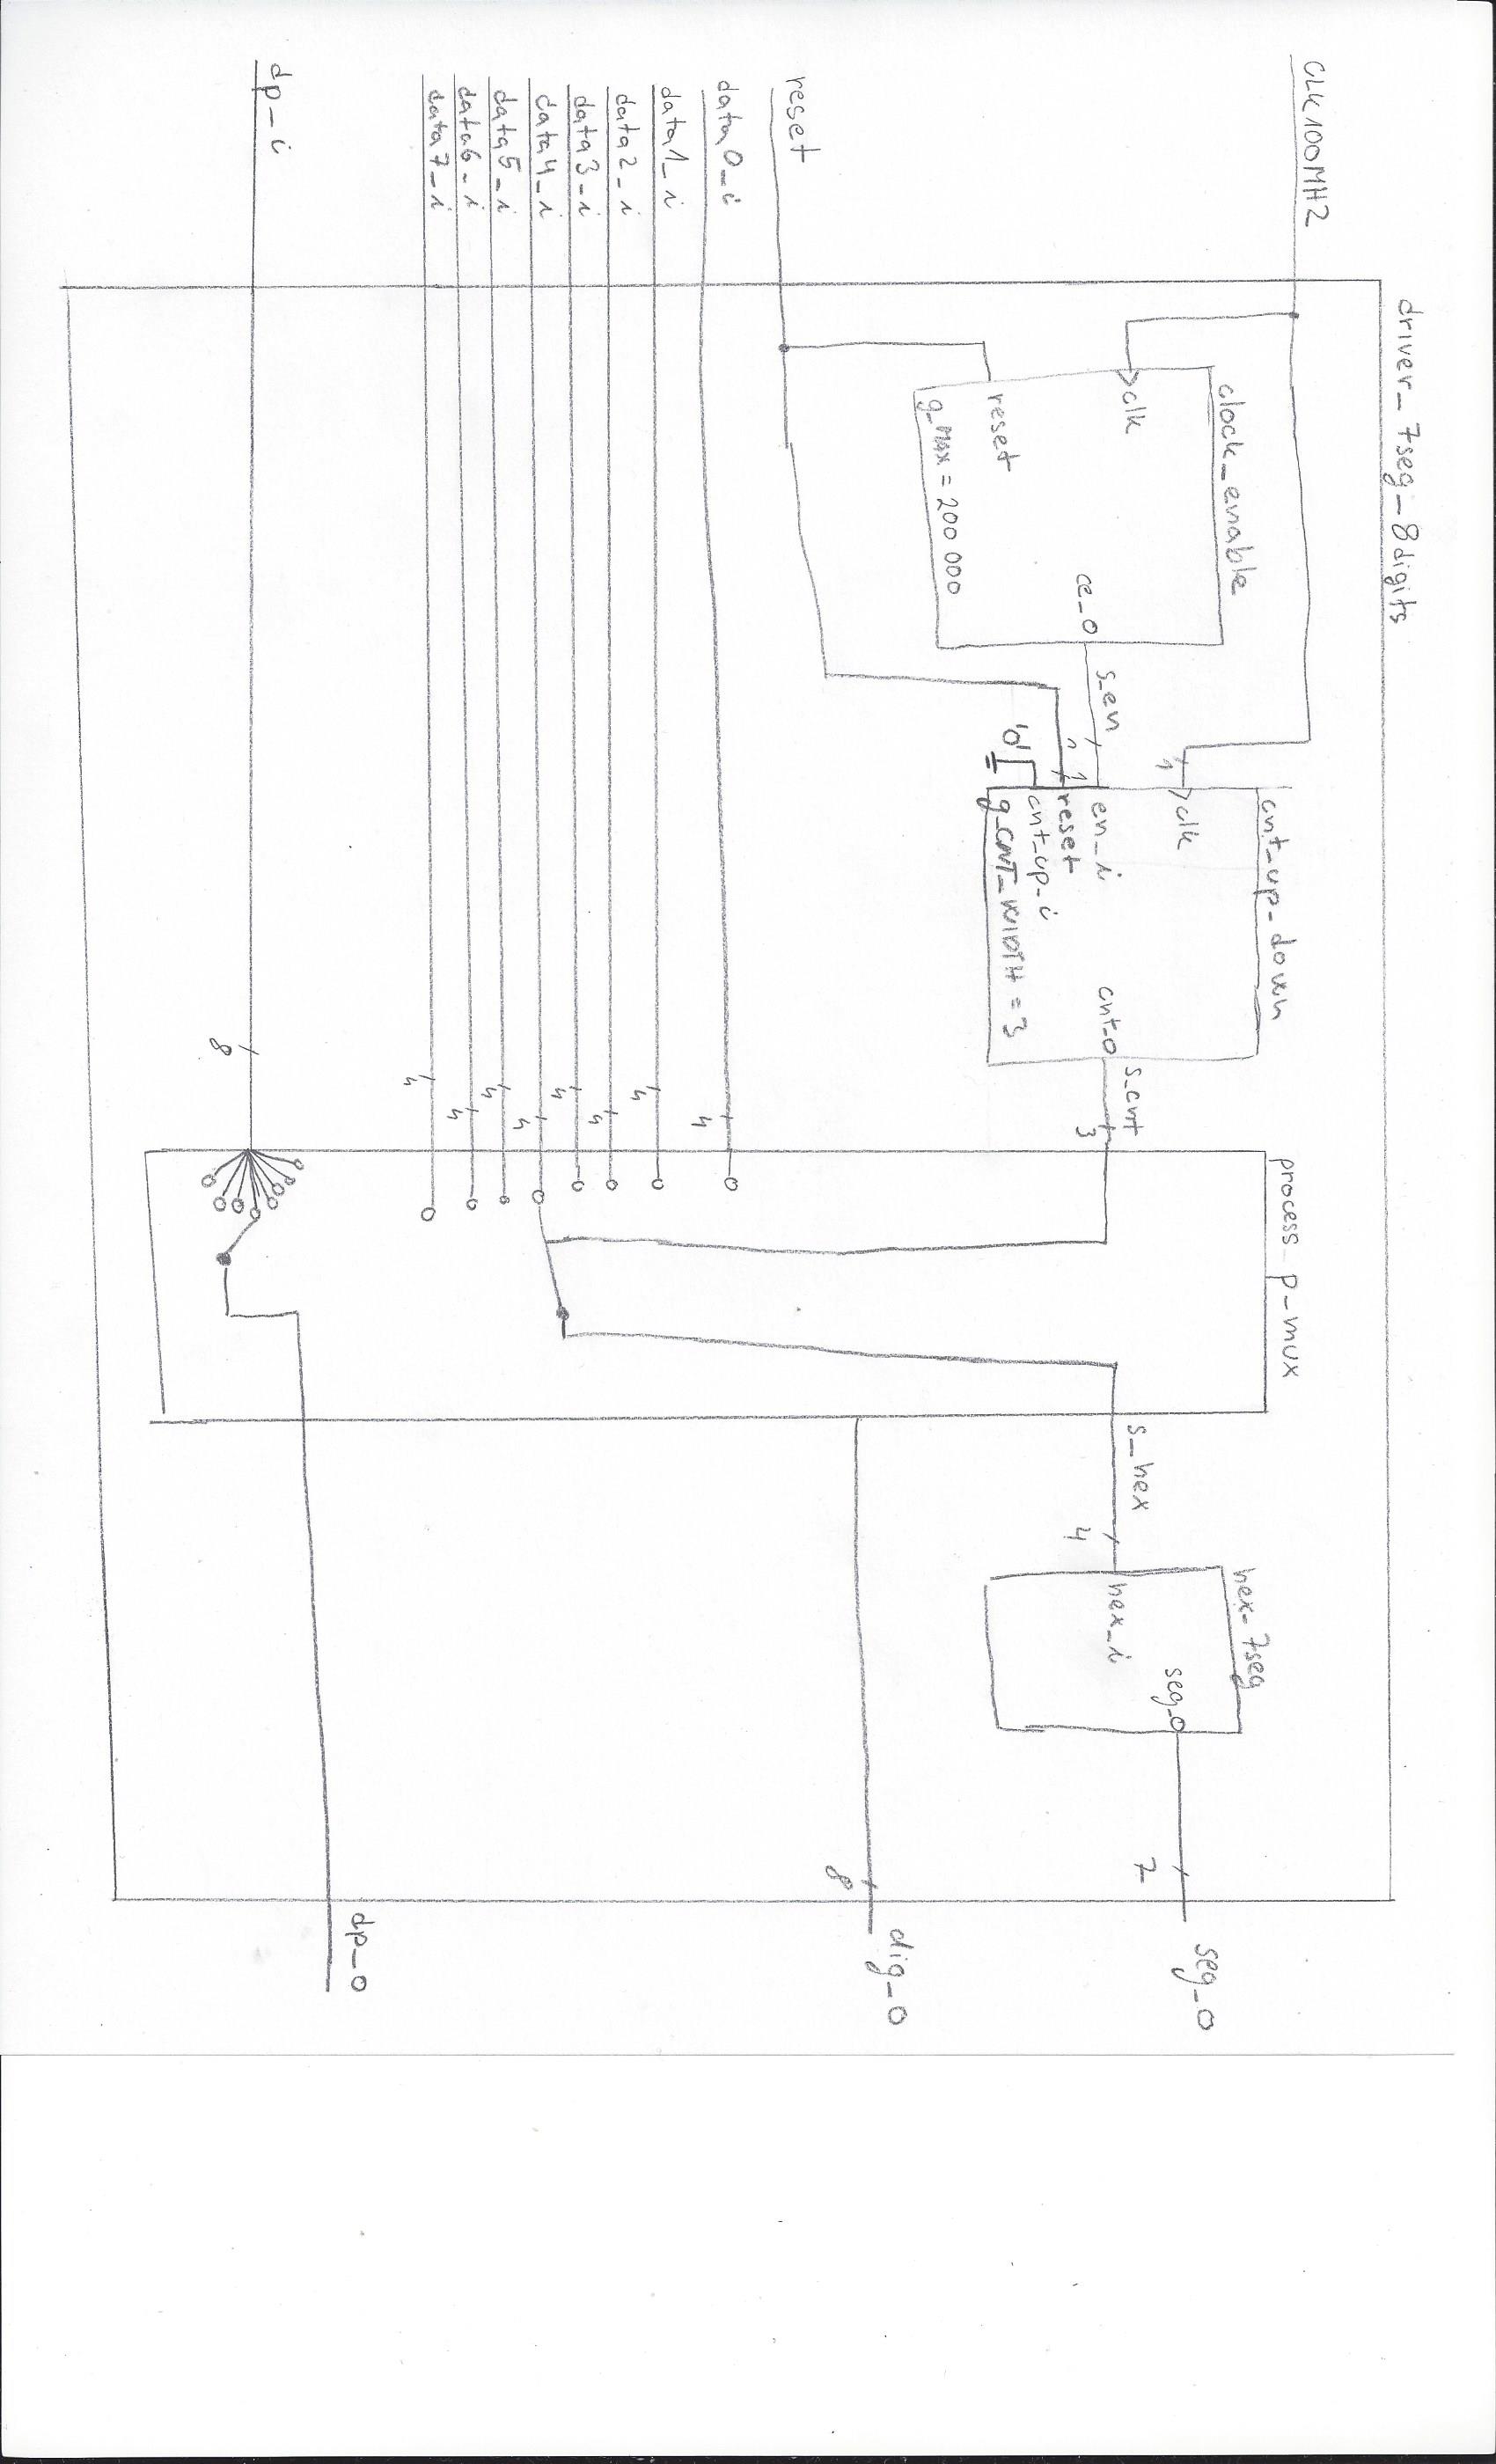 driver_7seg_8digits
CLK100MHZ
clock_enable
clk
ce_o
reset
g_MAX = 200 000
s_en
1
cnt_up_down
clk
en_i
1
reset
cnt_up_i
'0'
g_CNT_WIDTH = 3
cnt_o
s_cnt
3
process p_mux
s_hex
4
hex_7seg
seg_o
hex_i
seg_o
7
dig_o
8
reset
data0_i
4
data1_i
4
data2_i
4
data3_i
4
data4_i
4
data5_i
4
data6_i
4
data7_i
4
dp_i
8
dp_o